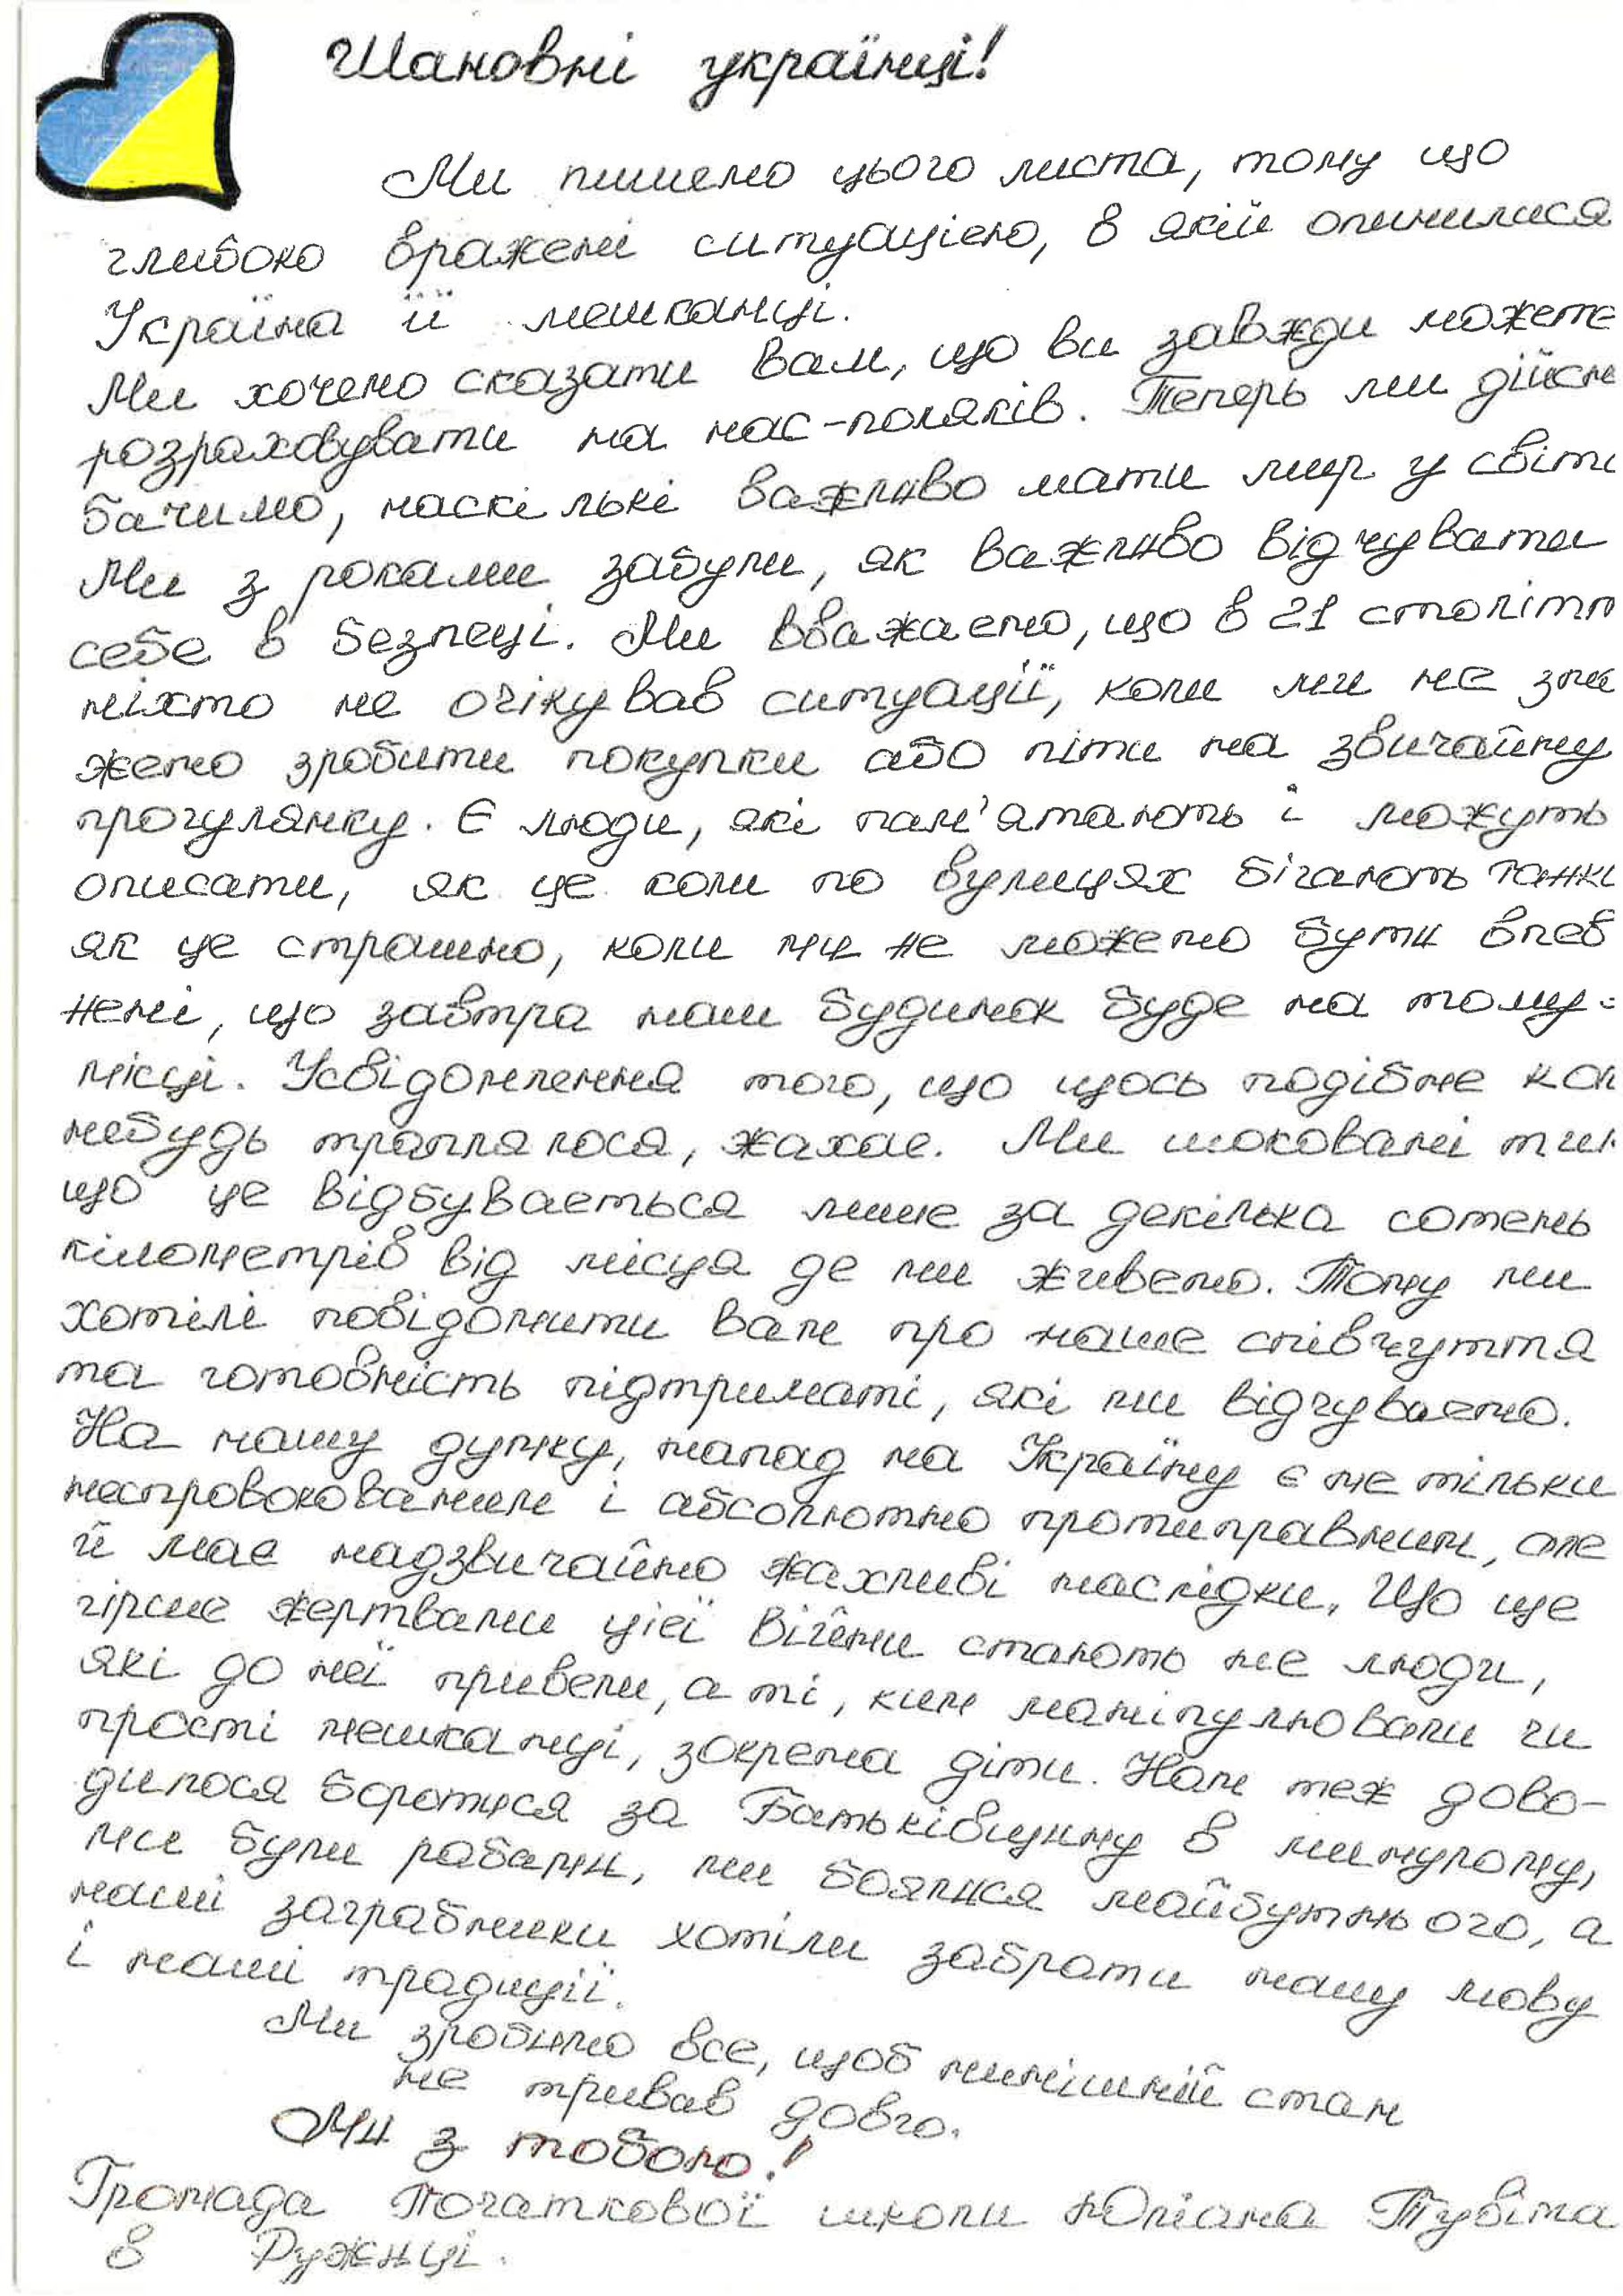 Шановні українці!
Ми пишемо цього листа, тому що
глибоко вражені ситуацією, в якій опинилися
Україна її мешканці.
Ми хочемо сказати Вам, що ви завжди можете
розраховувати на нас-поляків. Тепер ми дійсн
бачимо, наскількі важливо мати мир у світі
Ми з роками забули, як важливо відчувати
себе в безпеці. Ми вважаємо, що в 21 столітті
ніхто не очікував ситуації, коли ми не змо
жемо зробити покупки або піти на звичайну
прогулянку. Є люди, які пам'ятають і можуть
описати, як це коли по вулицях бігають танки
як це страшно, коли ми не можемо бути впев
нені, що завтра наш будинок буде на тому-
місці. Усвідомлення того, що щось подібне кол
небудь траплялося, жахає. Ми шоковані тим
що це відбувається лише за декілька сотень
кілометрів від місця де ми живемо. Тому ми
хотілі повідомити Вам про наше співчуття
та готовність підтриматі, які ми відчуваємо.
На нашу думку, напад на Україну є не тільки
неспровокованим і абсолютно протиправним, але
й має надзвичайно жахливі наслідки. Що ще
гірше жертвами цієї війни стають не люди,
які до неї привели, а ті, ким маніпулювали чи
прості мешканці, зокрема діти. Нам теж дово-
дилося боротися за Батьківщину в минулому,
ми були рабами, ми боялися майбутнього, а
наші загарбники хотіли забрати нашу мову
і наші традиції.
Ми зробимо все, щоб нинішній стан
не тривав довго.
Ми з тобою!
Громада Початкової школи Юліана Тувіма
в Ружиці.